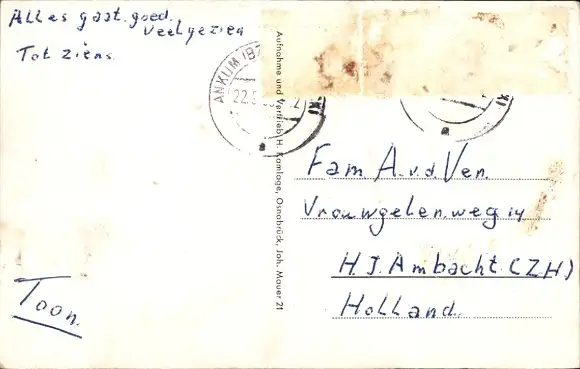 Alles gaat goed.
veel gezien
Tot ziens.
Toon.
ANKUM (BZ
22.
Aufnahme und Vertrieb H. Kamloge, Osnabrück, Joh. Mauer 21
Fam. A.v.d Ven.
Vrouwgelenweg 14
H.I. Ambacht (ZH)
Holland.